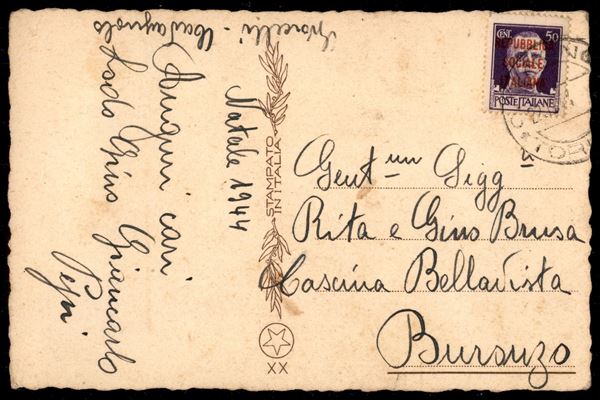 Natale 1944
Auguri cari
Giancarlo
Pepi
STAMPATO
IN ITALIA
XX
CENT. 50
REPUBBLICA
SOCIALE
ITALIANA
POSTE ITALIANE
Gent.mi Sigg.ri
Rita e Gino Brusa
Cascina Bellavista
Bursuzo